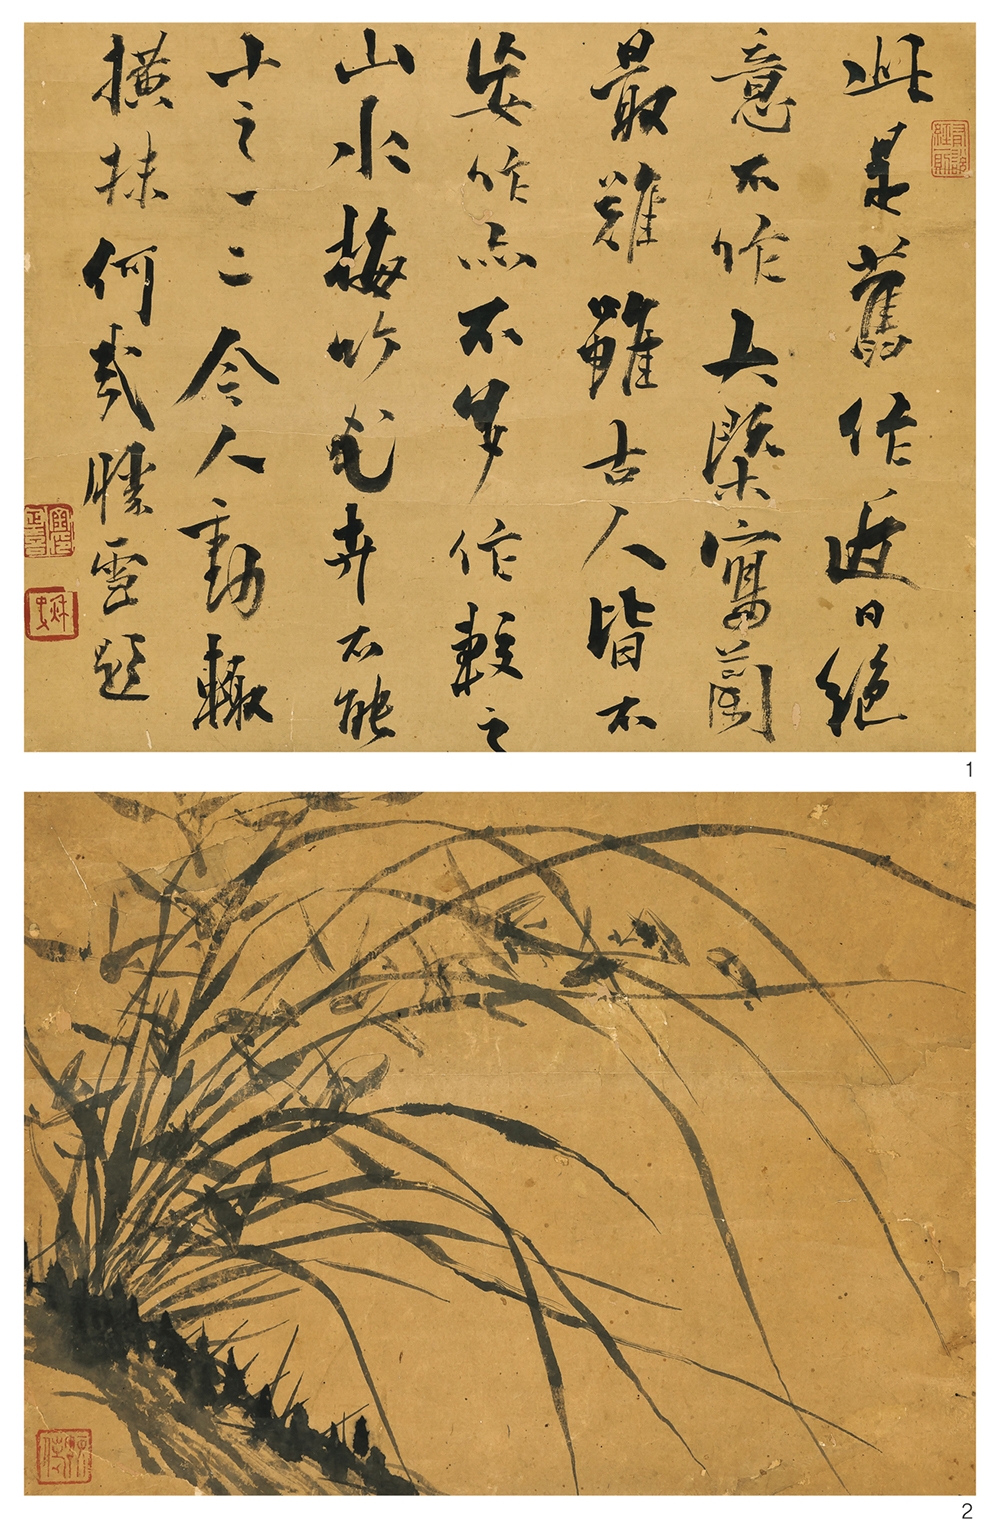 此是舊作近日絕
意不作大槩寫蘭
最難雖古人皆不
妄作亦不多作較之
山水梅竹花卉不能
十之一二今人動輒
橫抹何哉勝雪題
1
2